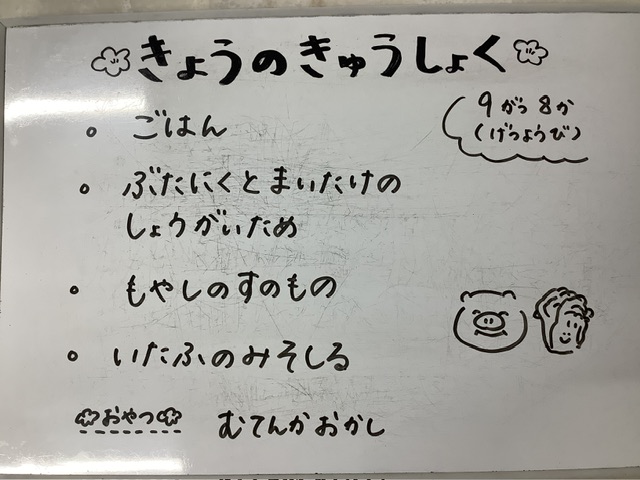 きょうのきゅうしょく
9がつ8か
(げつようび)
。ごはん
。ぶたにくとまいたけの
しょうがいため
。もやしのすのもの
。いたふのみそしる
おやつ むてんかおかし